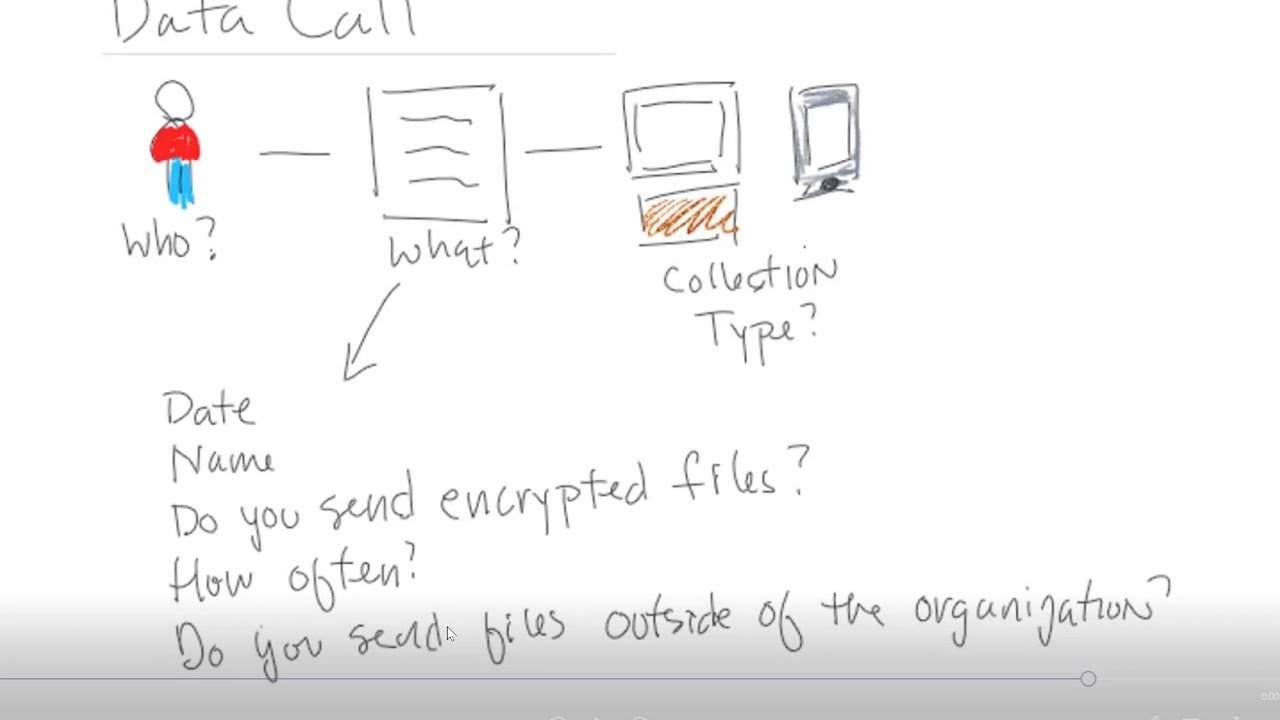 Data Call
Who?
What?
Collection
Type?
Date
Name
Do you send encrypted files?
How often?
Do you send files outside of the organization?
0:00